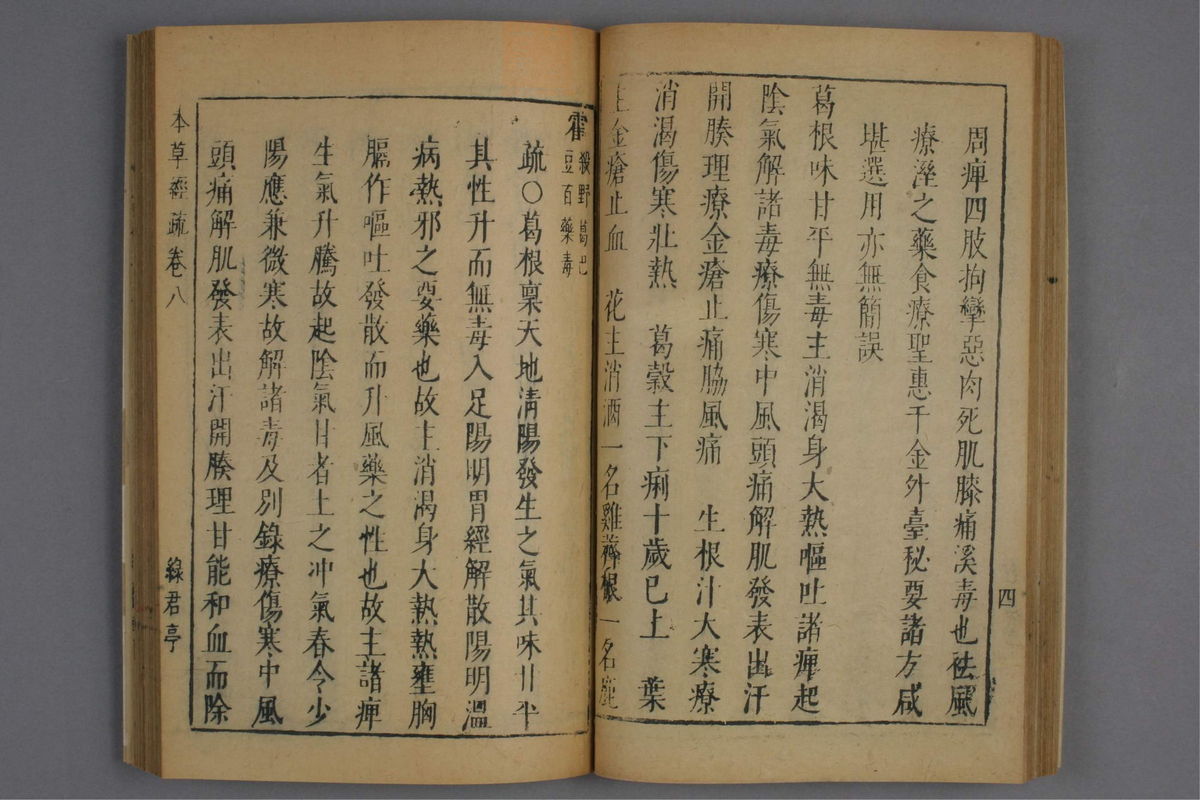 四
周痺四肢拘攣惡肉死肌膝痛溪毒也祛風
療溼之藥食療聖惠千金外臺秘要諸方咸
堪選用亦無簡誤
葛根味甘平無毒主消渴身大熱嘔吐諸痺起
陰氣解諸毒療傷寒中風頭痛解肌發表出汗
開腠理療金瘡止痛脇風痛 生根汁大寒療
消渴傷寒壯熱 葛穀主下痢十歲已上 葉
主金瘡止血 花主消酒一名雞薺根一名鹿
藿殺野葛巴
豆百藥毒
疏○葛根稟天地清陽發生之氣其味甘平
其性升而無毒入足陽明胃經解散陽明溫
病熱邪之要藥也故主消渴身大熱熱壅胸
膈作嘔吐發散而升風藥之性也故主諸痺
生氣升騰故起陰氣甘者土之冲氣春令少
陽應兼微寒故解諸毒及別錄療傷寒中風
頭痛解肌發表出汗開腠理甘能和血而除
本草經疏卷八
綠君亭